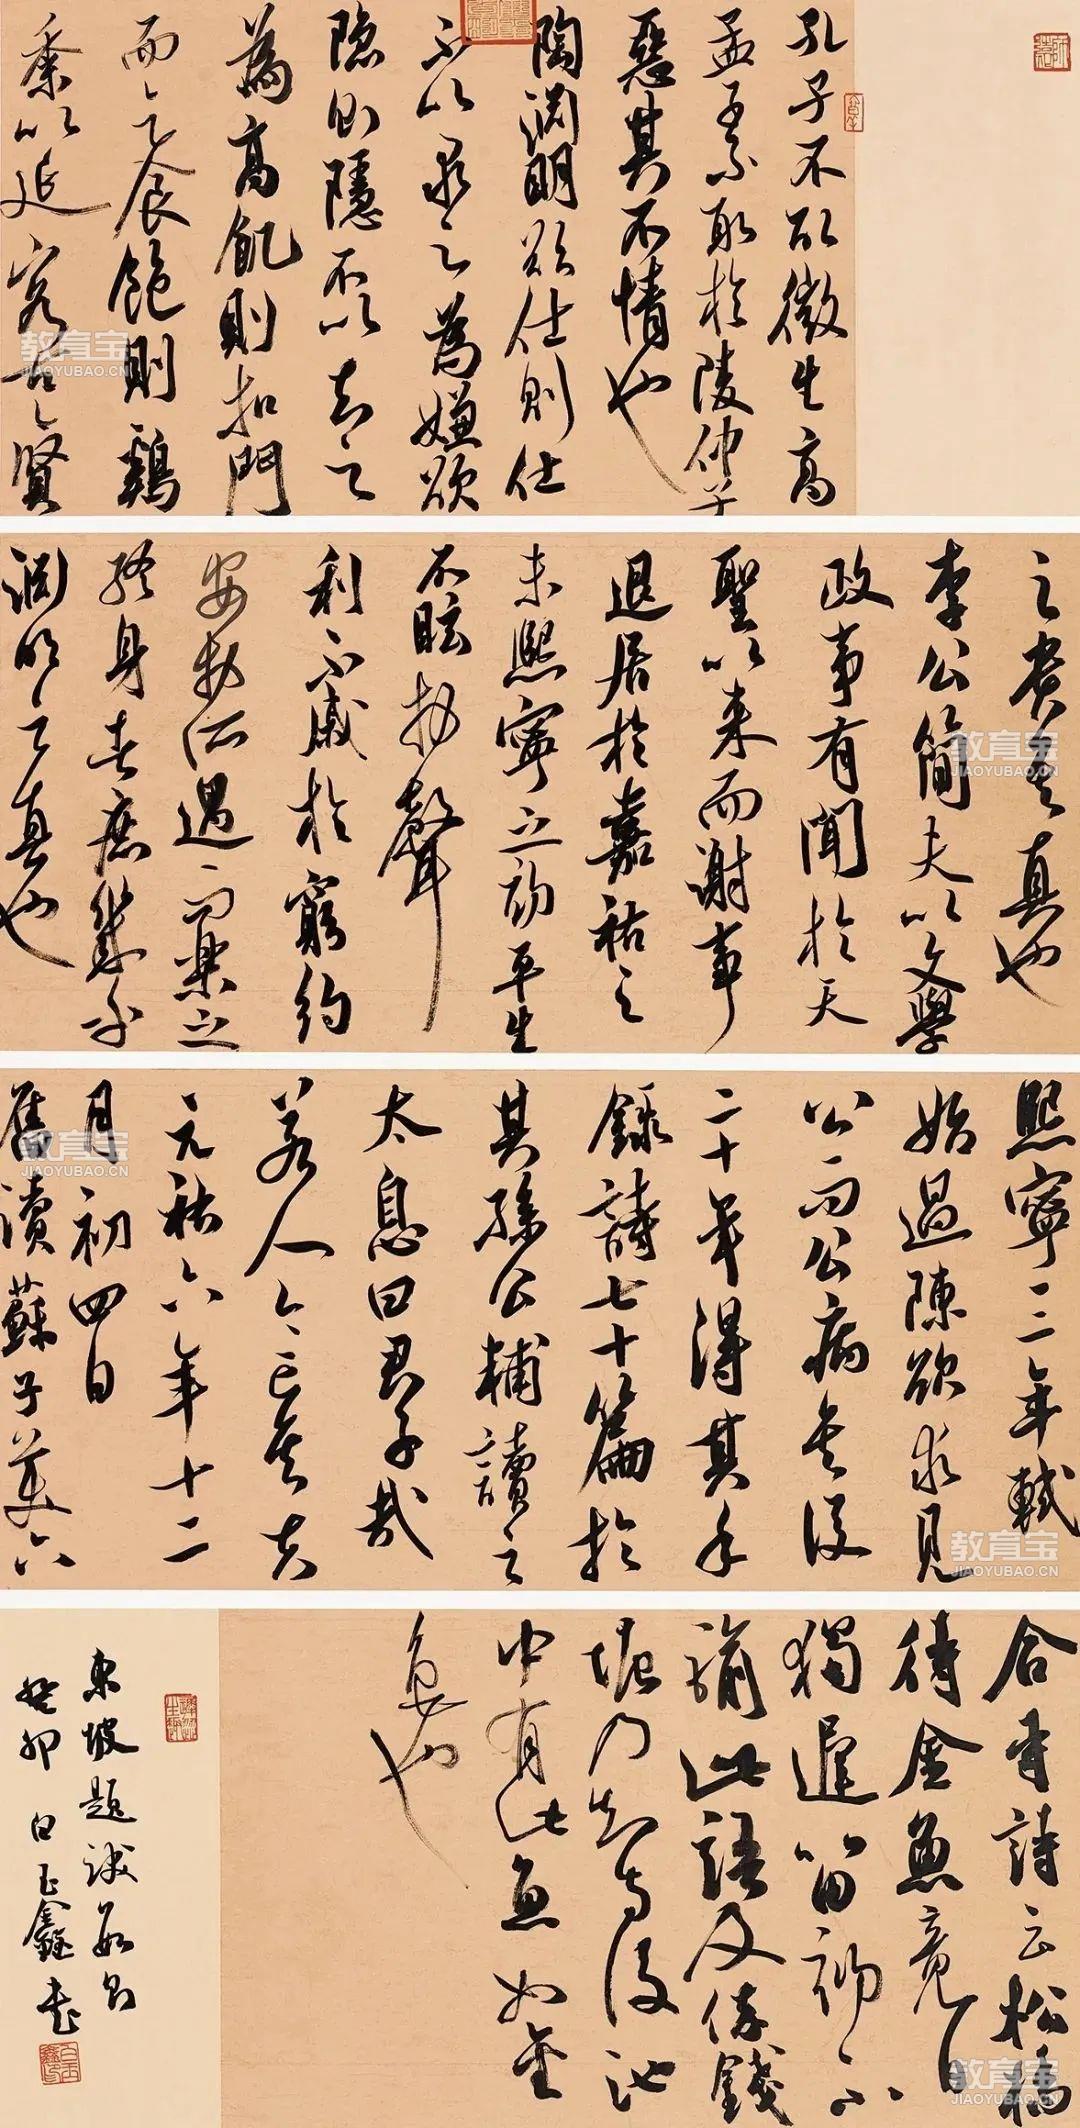 孔子不取微生高
孟子不取於陵仲子
惡其不情也
陶淵明欲仕則仕
不以求之為嫌欲
隐則隱不以去之
為高飢則扣門
而乞食飽則鷄
黍以延客古今賢
之貴其真也
李公簡夫以文學
政事有聞於天
聖以來而謝事
退居於嘉祐之
末熙寧之初平生
不眩於聲
利不戚於窮約
安於所遇而樂之
終身者庶幾乎
淵明之真也
熙寧三年軾
始過陳欲求見
公而公病矣後
二十年得其手
錄詩七十篇於
其孫公輔讀之
太息曰君子哉
若人今亡矣夫
元祐六年十二
月初四日
舊讀蘇子美六
合寺詩云松橋
待金魚竟日
獨遲留初不
諭此語及倅錢
塘乃知寺後池
中有此魚如金
色也
東坡題跋數則
癸卯 白玉鑫書
教育宝
JIAOYUBAO.CN
教育宝
JIAOYUBAO.CN
教育宝
JIAOYUBAO.CN
教育宝
JIAOYUBAO.CN
教育宝
JIAOYUBAO.CN